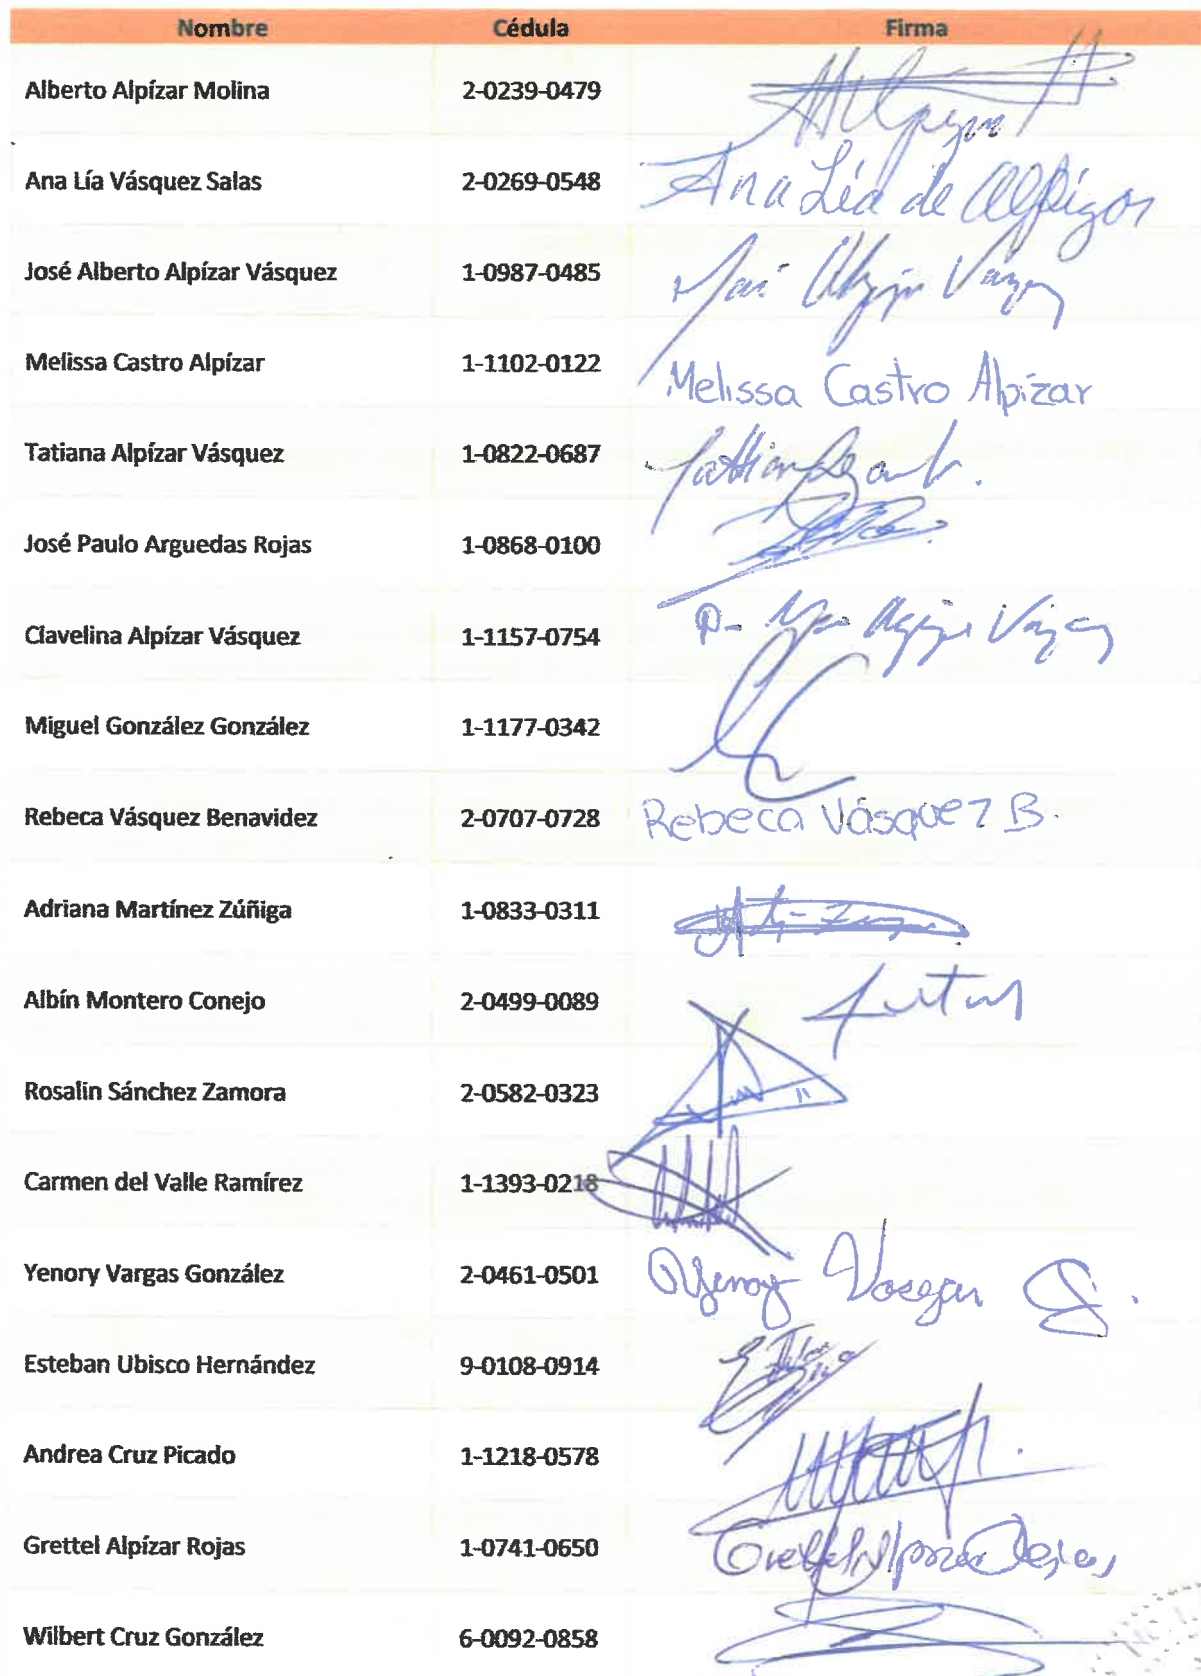 Nombre Cédula Firma
Alberto Alpízar Molina 2-0239-0479
Ana Lía Vásquez Salas 2-0269-0548 Ana Lía de Alpízar
José Alberto Alpízar Vásquez 1-0987-0485
Melissa Castro Alpízar 1-1102-0122 Melissa Castro Alpízar
Tatiana Alpízar Vásquez 1-0822-0687
José Paulo Arguedas Rojas 1-0868-0100
Clavelina Alpízar Vásquez 1-1157-0754
Miguel González González 1-1177-0342
Rebeca Vásquez Benavidez 2-0707-0728 Rebeca Vásquez B.
Adriana Martínez Zúñiga 1-0833-0311
Albín Montero Conejo 2-0499-0089
Rosalin Sánchez Zamora 2-0582-0323
Carmen del Valle Ramírez 1-1393-0218
Yenory Vargas González 2-0461-0501
Esteban Ubisco Hernández 9-0108-0914
Andrea Cruz Picado 1-1218-0578
Grettel Alpízar Rojas 1-0741-0650
Wilbert Cruz González 6-0092-0858